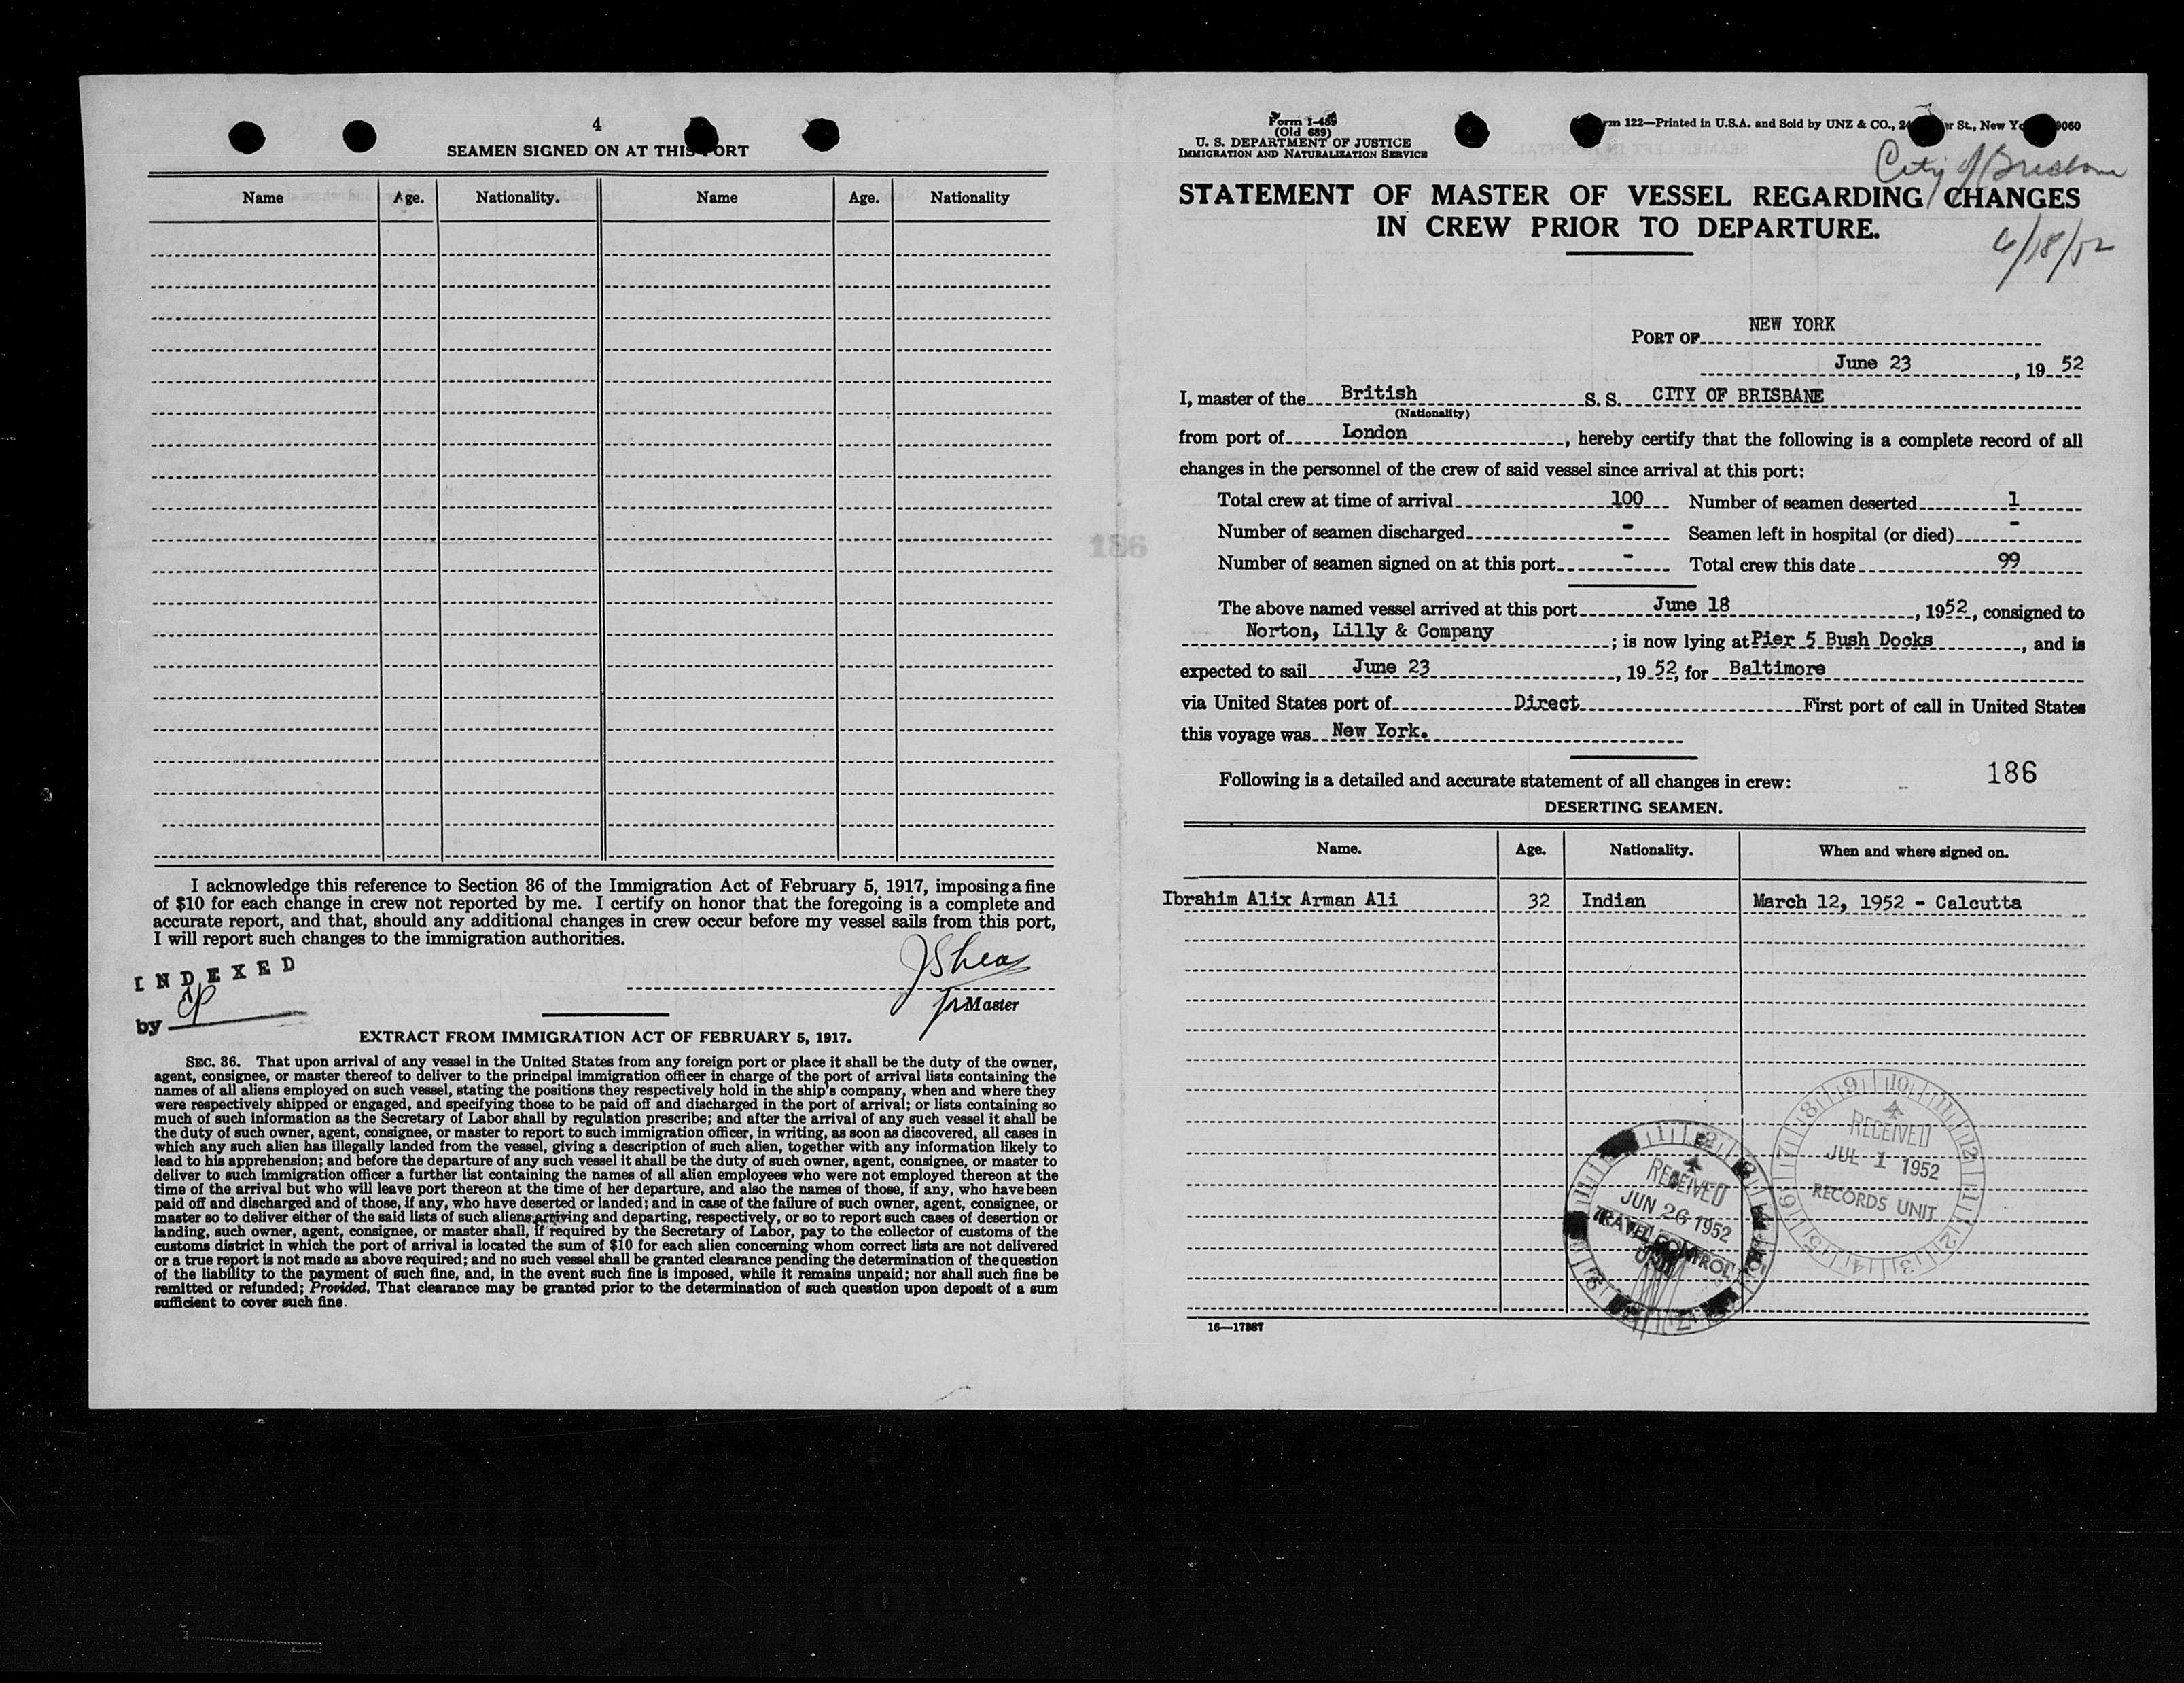 4
SEAMEN SIGNED ON AT THIS PORT
Name Age. Nationality. Name Age. Nationality
I acknowledge this reference to Section 36 of the Immigration Act of February 5, 1917, imposing a fine
of $10 for each change in crew not reported by me. I certify on honor that the foregoing is a complete and
accurate report, and that, should any additional changes in crew occur before my vessel sails from this port,
I will report such changes to the immigration authorities.
INDEXED
by
JShea
Master
EXTRACT FROM IMMIGRATION ACT OF FEBRUARY 5, 1917.
SEC. 36. That upon arrival of any vessel in the United States from any foreign port or place it shall be the duty of the owner,
agent, consignee, or master thereof to deliver to the principal immigration officer in charge of the port of arrival lists containing the
names of all aliens employed on such vessel, stating the positions they respectively hold in the ship's company, when and where they
were respectively shipped or engaged, and specifying those to be paid off and discharged in the port of arrival; or lists containing so
much of such information as the Secretary of Labor shall by regulation prescribe; and after the arrival of any such vessel it shall be
the duty of such owner, agent, consignee, or master to report to such immigration officer, in writing, as soon as discovered, all cases in
which any such alien has illegally landed from the vessel, giving a description of such alien, together with any information likely to
lead to his apprehension; and before the departure of any such vessel it shall be the duty of such owner, agent, consignee, or master to
deliver to such immigration officer a further list containing the names of all alien employees who were not employed thereon at the
time of the arrival but who will leave port thereon at the time of her departure, and also the names of those, if any, who have been
paid off and discharged and of those, if any, who have deserted or landed; and in case of the failure of such owner, agent, consignee, or
master so to deliver either of the said lists of such aliens arriving and departing, respectively, or so to report such cases of desertion or
landing, such owner, agent, consignee, or master shall, if required by the Secretary of Labor, pay to the collector of customs of the
customs district in which the port of arrival is located the sum of $10 for each alien concerning whom correct lists are not delivered
or a true report is not made as above required; and no such vessel shall be granted clearance pending the determination of the question
of the liability to the payment of such fine, and, in the event such fine is imposed, while it remains unpaid; nor shall such fine be
remitted or refunded; Provided, That clearance may be granted prior to the determination of such question upon deposit of a sum
sufficient to cover such fine.
Form I-489
(Old 689)
U. S. DEPARTMENT OF JUSTICE
IMMIGRATION AND NATURALIZATION SERVICE
122—Printed in U.S.A. and Sold by UNZ & CO., St., New
City of Brisbane
STATEMENT OF MASTER OF VESSEL REGARDING CHANGES
IN CREW PRIOR TO DEPARTURE.
6/18/52
PORT OF NEW YORK
June 23, 19 52
I, master of the British S. S. CITY OF BRISBANE
(Nationality)
from port of London, hereby certify that the following is a complete record of all
changes in the personnel of the crew of said vessel since arrival at this port:
Total crew at time of arrival 100 Number of seamen deserted 1
Number of seamen discharged - Seamen left in hospital (or died) -
Number of seamen signed on at this port - Total crew this date 99
The above named vessel arrived at this port June 18, 1952, consigned to
Norton, Lilly & Company; is now lying at Pier 5 Bush Docks, and is
expected to sail June 23, 19 52, for Baltimore
via United States port of Direct First port of call in United States
this voyage was New York.
Following is a detailed and accurate statement of all changes in crew: 186
DESERTING SEAMEN.
Name. Age. Nationality. When and where signed on.
Ibrahim Alix Arman Ali 32 Indian March 12, 1952 - Calcutta
RECEIVED
JUN 26 1952
TRAVEL CONTROL
UNIT
RECEIVED
JUL 1 1952
RECORDS UNIT
16—17387